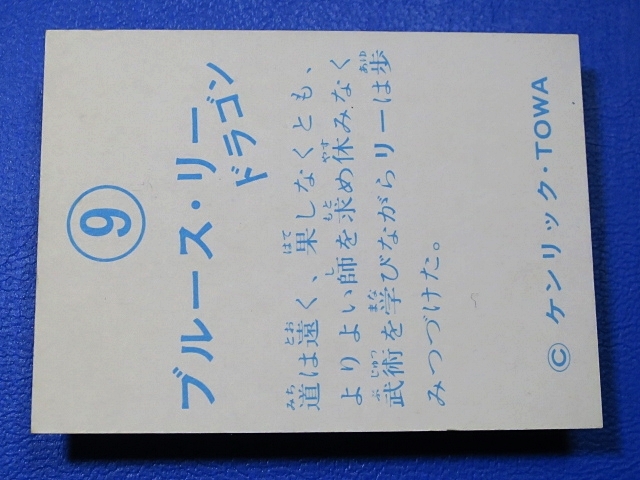 9
ブルース・リー
ドラゴン
道は遠く、果しなくとも、
よりよい師を求め休みなく
武術を学びながらリーは歩
みつづけた。
© ケンリック・TOWA